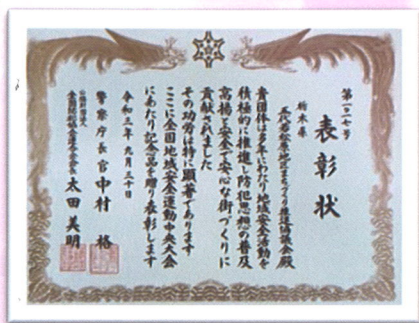 表彰状
第一〇一七号
栃木県
五代若松原地区まちづくり推進協議会殿
貴団体は多年にわたり地域安全活動を
積極的に推進し防犯思想の普及
高揚と安全で安心な街づくりに
貢献されました
その功労は特に顕著であります
ここに全国地域安全運動中央大会
にあたり記念品を贈り表彰します
令和三年九月三十日
警察庁長官 中村 格
公益財団法人
全国防犯協会連合会会長 太田 美明